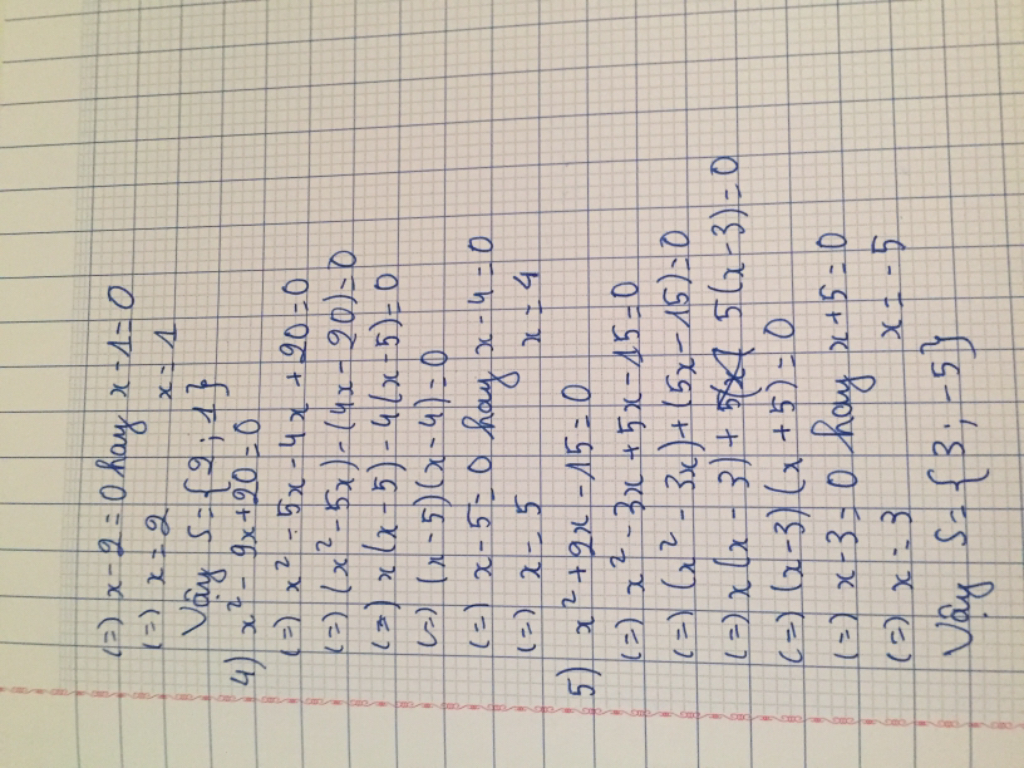 (=) x - 2 = 0 hay x - 1 = 0
(=) x = 2 x = 1
Vậy S = {2; 1}
4) x² - 9x + 20 = 0
(=) x² - 5x - 4x + 20 = 0
(=) (x² - 5x) - (4x - 20) = 0
(=) x(x - 5) - 4(x - 5) = 0
(=) (x - 5)(x - 4) = 0
(=) x - 5 = 0 hay x - 4 = 0
(=) x = 5 x = 4
5) x² + 2x - 15 = 0
(=) x² - 3x + 5x - 15 = 0
(=) (x² - 3x) + (5x - 15) = 0
(=) x(x - 3) + 5(x - 3) = 0
(=) (x - 3)(x + 5) = 0
(=) x - 3 = 0 hay x + 5 = 0
(=) x = 3 x = -5
Vậy S = {3; -5}